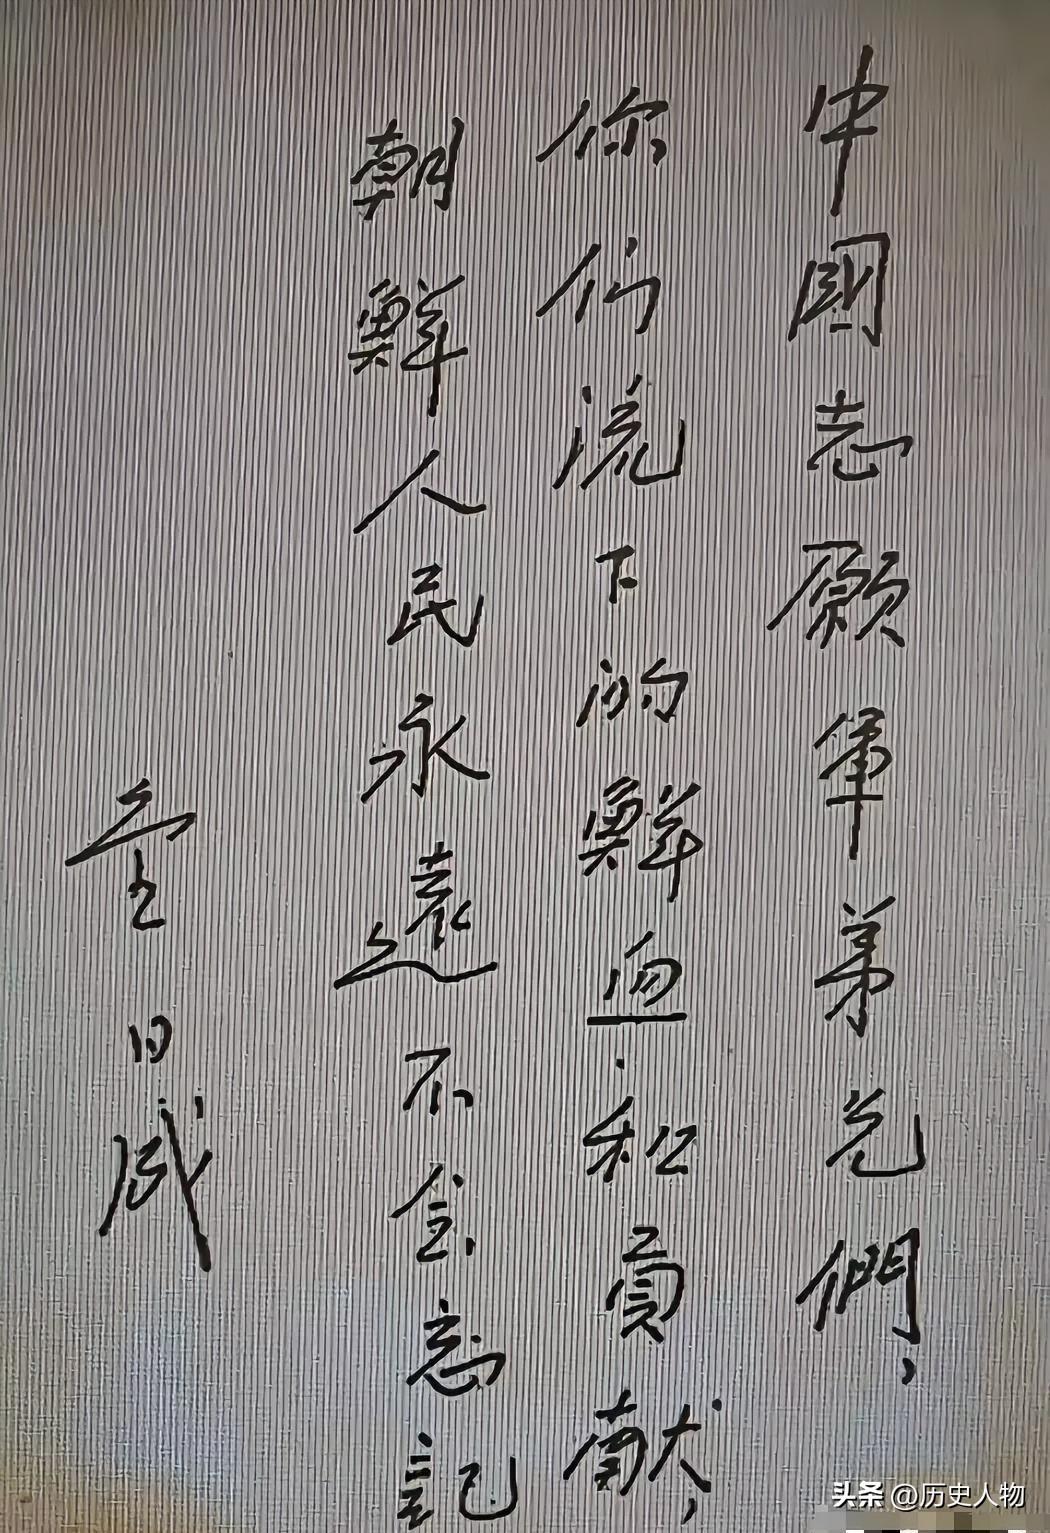 中國志願軍弟兄們，
你们流下的鲜血·和貢献，
朝鮮人民永遠不会忘記
金日成
头条 @历史人物